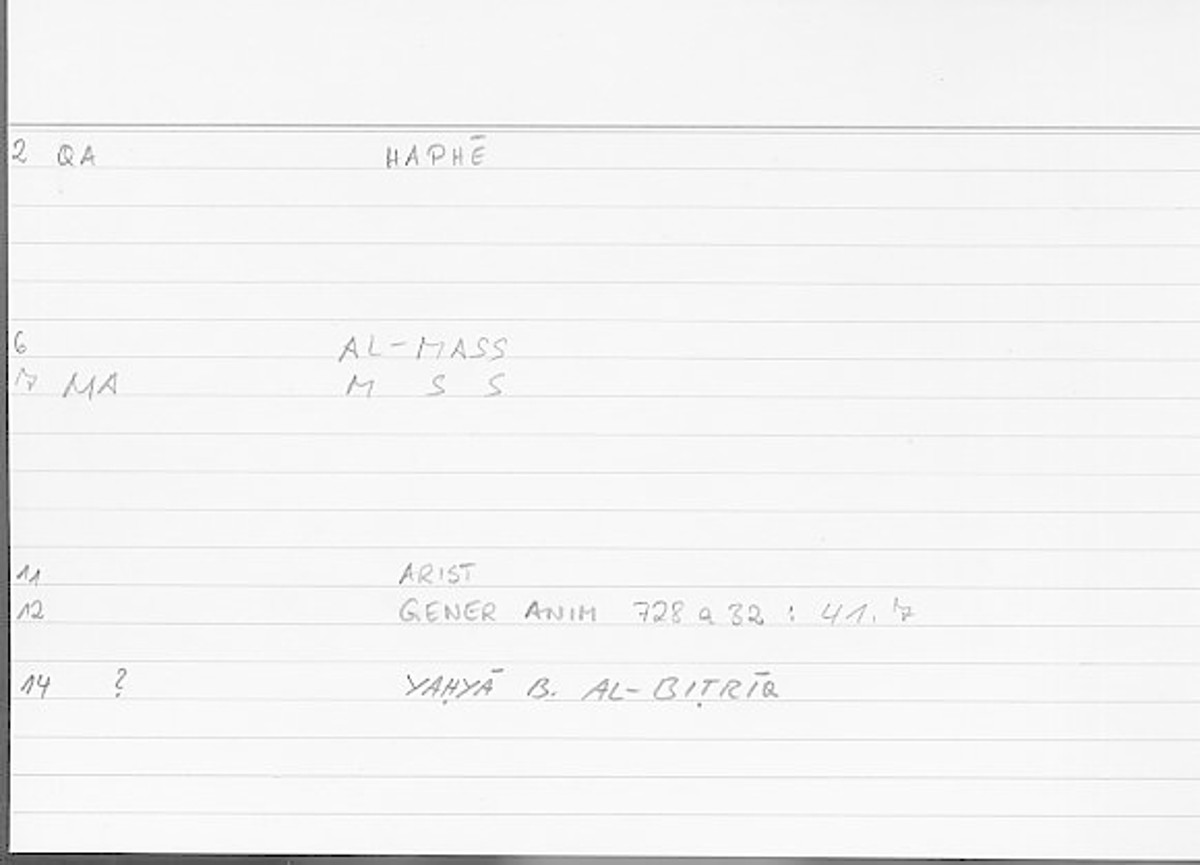 2 QA HAPHĒ
6 AL-MASS
7 MA M S S
11 ARIST
12 GENER ANIM 728 a 32 : 41.7
14 ? YAḤYĀ B. AL-BIṬRĪQ